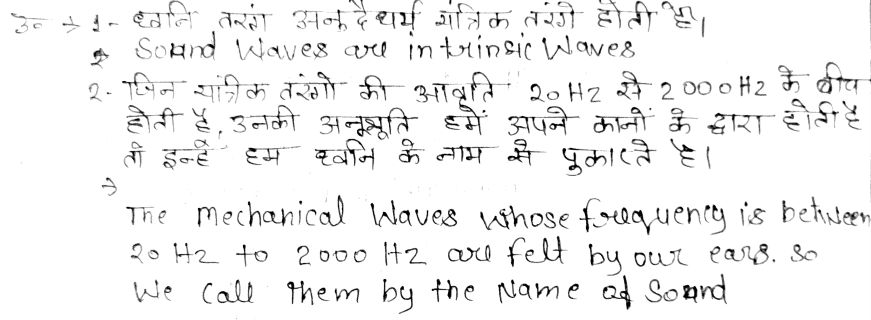 उ० → 1- ध्वनि तरंग अनुदैधर्य यांत्रिक तरंगे होती है।
→ Sound Waves are intrinsic Waves
2- जिन यांत्रिक तरंगो की आवृति 20 Hz से 2000 Hz के बीच
होती है, उनकी अनुभूति हमें अपने कानों के द्वारा होती है
तो इन्हें हम ध्वनि के नाम से पुकारते है।
→
The mechanical Waves whose frequency is between
20 Hz to 2000 Hz are felt by our ears. so
We Call them by the Name of Sound